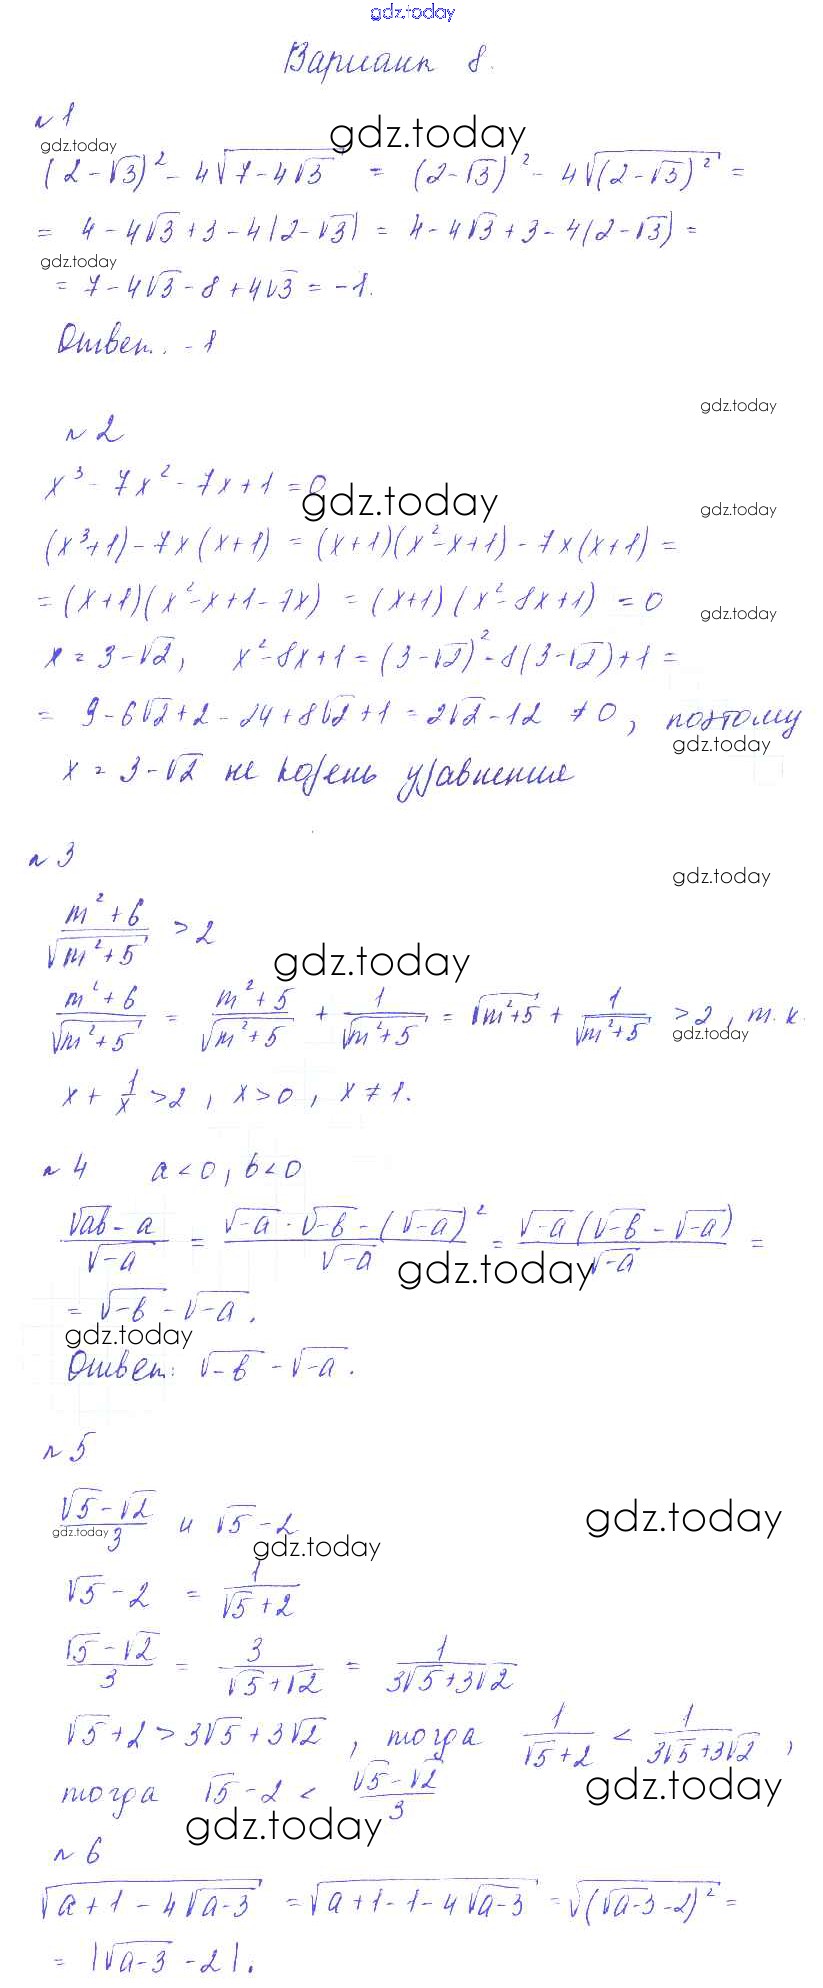 gdz.today
Вариант 8.
№1
gdz.today
gdz.today
(2-√3)² - 4√(7-4√3) = (2-√3)² - 4√((2-√3)²) =
= 4-4√3+3-4|2-√3| = 4-4√3+3-4(2-√3) =
gdz.today
= 7-4√3-8+4√3 = -1.
Ответ. -1
gdz.today
№2
x³-7x²-7x+1=0
gdz.today
gdz.today
(x³+1)-7x(x+1) = (x+1)(x²-x+1)-7x(x+1) =
= (x+1)(x²-x+1-7x) = (x+1)(x²-8x+1) = 0
gdz.today
x = 3-√2, x²-8x+1 = (3-√2)²-8(3-√2)+1 =
= 9-6√2+2-24+8√2+1 = 2√2-12 ≠ 0, поэтому
gdz.today
x = 3-√2 не корень уравнения
№3
gdz.today
(m²+6)/√(m²+5) > 2
gdz.today
(m²+6)/√(m²+5) = (m²+5)/√(m²+5) + 1/√(m²+5) = √(m²+5) + 1/√(m²+5) > 2, т.к.
gdz.today
x + 1/x > 2, x>0, x≠1.
№4 a<0, b<0
(√(ab)-a)/√(-a) = (√(-a)·√(-b)-(√(-a))²)/√(-a) = (√(-a)(√(-b)-√(-a)))/√(-a) =
gdz.today
= √(-b)-√(-a).
gdz.today
Ответ: √(-b)-√(-a).
№5
(√5-√2)/3 и √5-2
gdz.today
gdz.today
gdz.today
√5-2 = 1/(√5+2)
(√5-√2)/3 = 3/(√5+√2) = 1/(3√5+3√2)
√5+2 > 3√5+3√2, тогда 1/(√5+2) < 1/(3√5+3√2),
gdz.today
тогда √5-2 < (√5-√2)/3
gdz.today
№6
√(a+1-4√(a-3)) = √(a+1-1-4√(a-3)) = √((√(a-3)-2)²) =
= |√(a-3)-2|.